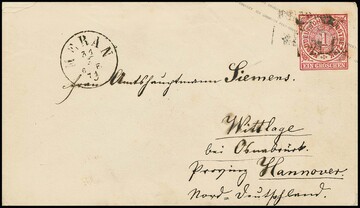 MERAN
EIN GROSCHEN
Frau Amtshauptmann Siemens.
Wittlage
bei Osnabrück.
Provinz Hannover.
Nord-Deutschland.